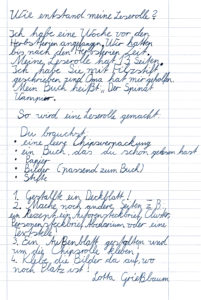 Wie entstand meine Leserolle?
Ich habe eine Woche vor den
Herbstferien angefangen. Wir hatten
bis nach den Herbstferien Zeit.
Meine Leserolle hat 13 Seiten.
Ich habe Sie mit Filzstift
geschrieben und Oma hat mir geholfen.
Mein Buch heißt „Der Spindt
Vampir".
So wird eine Leserolle gemacht.
Du brauchst:
• eine leere Chipsverpackung
• ein Buch, das du schon gelesen hast
• Papier
• Bilder (passend zum Buch)
• Stifte
1. Gestallte ein Deckblatt!
2. Mache noch andere Seiten z.B.
ein Rezept, ein Autorensteckbrief, Cluster,
Personensteckbrief, Akrosti oder eine
Textstelle!
3. Ein Außenblatt gestalten und
um die Chipsrolle kleben.
4. Klebe die Bilder da auf wo
noch Platz ist!
Lotta Grießbaum